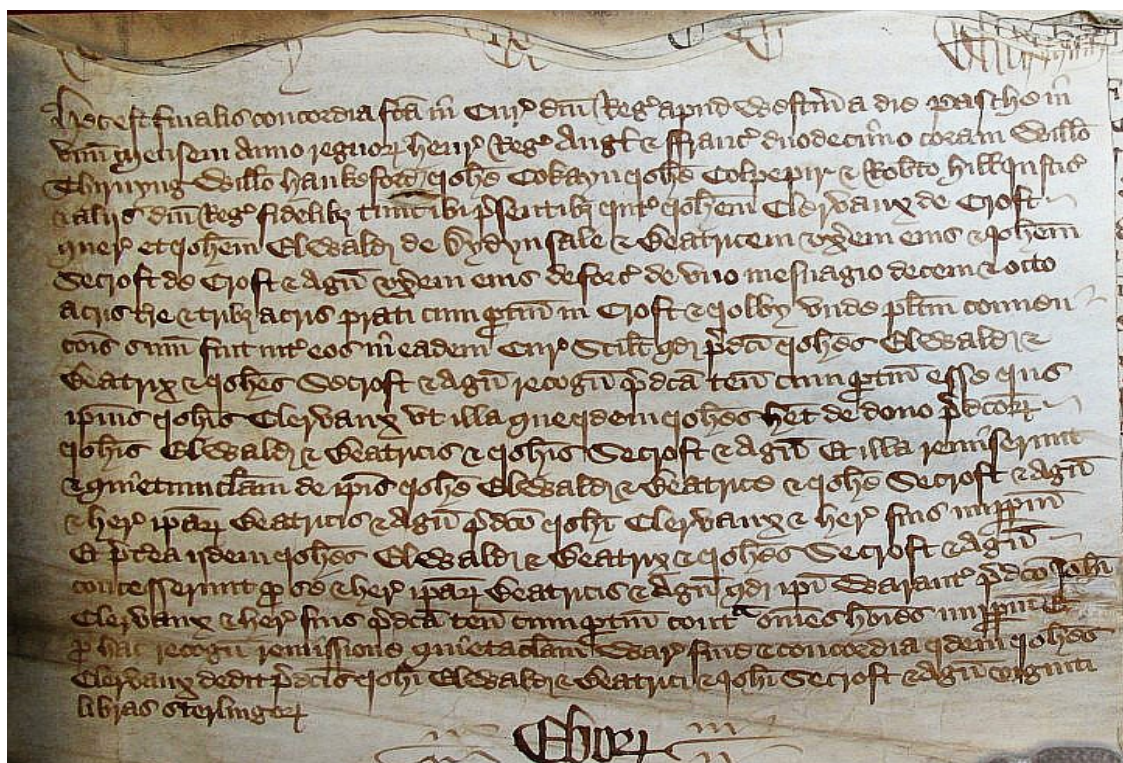 Hec est finalis concordia fca in Cur dni Reg apud Westm a die Pasche in
unu mensem Anno regnor Henr Reg Angl & Franc duodecimo coram Willo
Thirnyng Willo Hankeford Johe Cokayn Johe Colpepir & Robto Hill Justic
& alijs dni Reg fidelib tunc ibi psentib Int Johem Clervaux de Croft
quer et Johem Elwald de & Beatricem uxem eius & Johem
Secroft de Croft & Agn uxem eius deforc de uno mesuagio decem & octo
acris tre & trib acris prati cum ptin in Croft & Jolby unde plitm conven
cois sum fuit int eos in eadem Cur Scilt qd pdci Johes Elwald &
Beatrix & Johes Secroft & Agn recogn pdca ten cum ptin esse ius
ipius Johis Clervaux ut illa que idem Johes het de dono pdcor
Johis Elwald & Beatricis & Johis Secroft & Agn Et illa remiserunt
& quietumclam de ipis Johe Elwald & Beatrice & Johe Secroft & Agn
& her ipar Beatricis & Agn pdco Johi Clervaux & her suis imppm
Et pterea ijdem Johes Elwald & Beatrix & Johes Secroft & Agn
concesserunt p se & her ipar Beatricis & Agn qd ipi Warant pdco Johi
Clervaux & her suis pdca ten cum ptin cont omes hoies imppm Et
p hac recogn remissione quietaclam War fine & concordia idem Johes
Clervaux dedit pdcis Johi Elwald & Beatrici & Johi Secroft & Agn viginti
libras sterlingor
Ebor